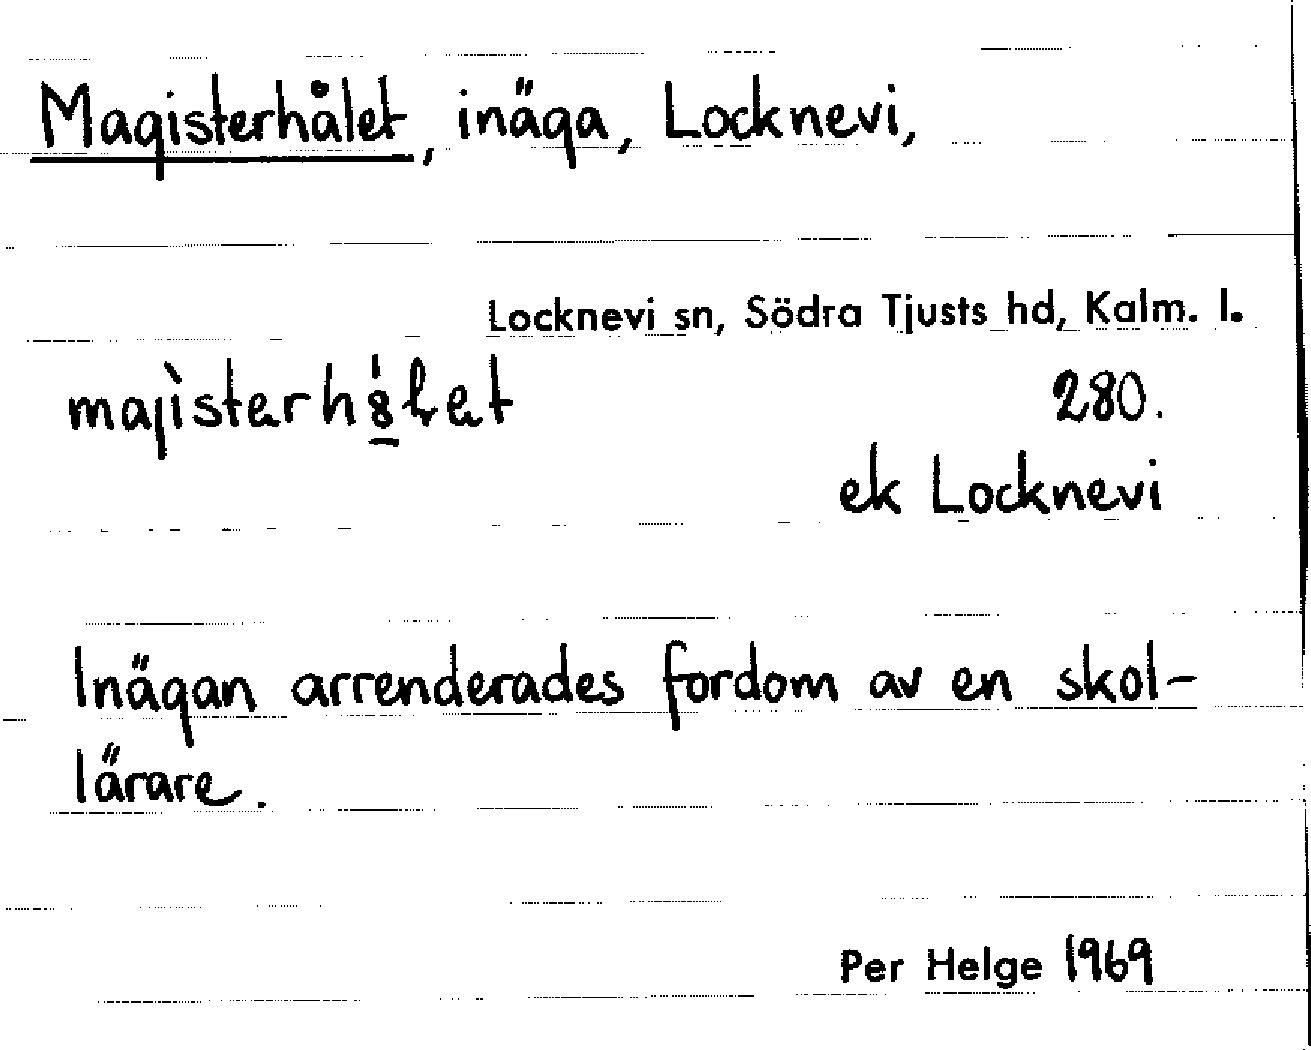 Magisterhålet, inäga, Locknevi,
Locknevi sn, Södra Tjusts hd, Kalm. l.
280.
ek Locknevi
Inägan arrenderades fordom av en skol-
lärare.
Per Helge 1969